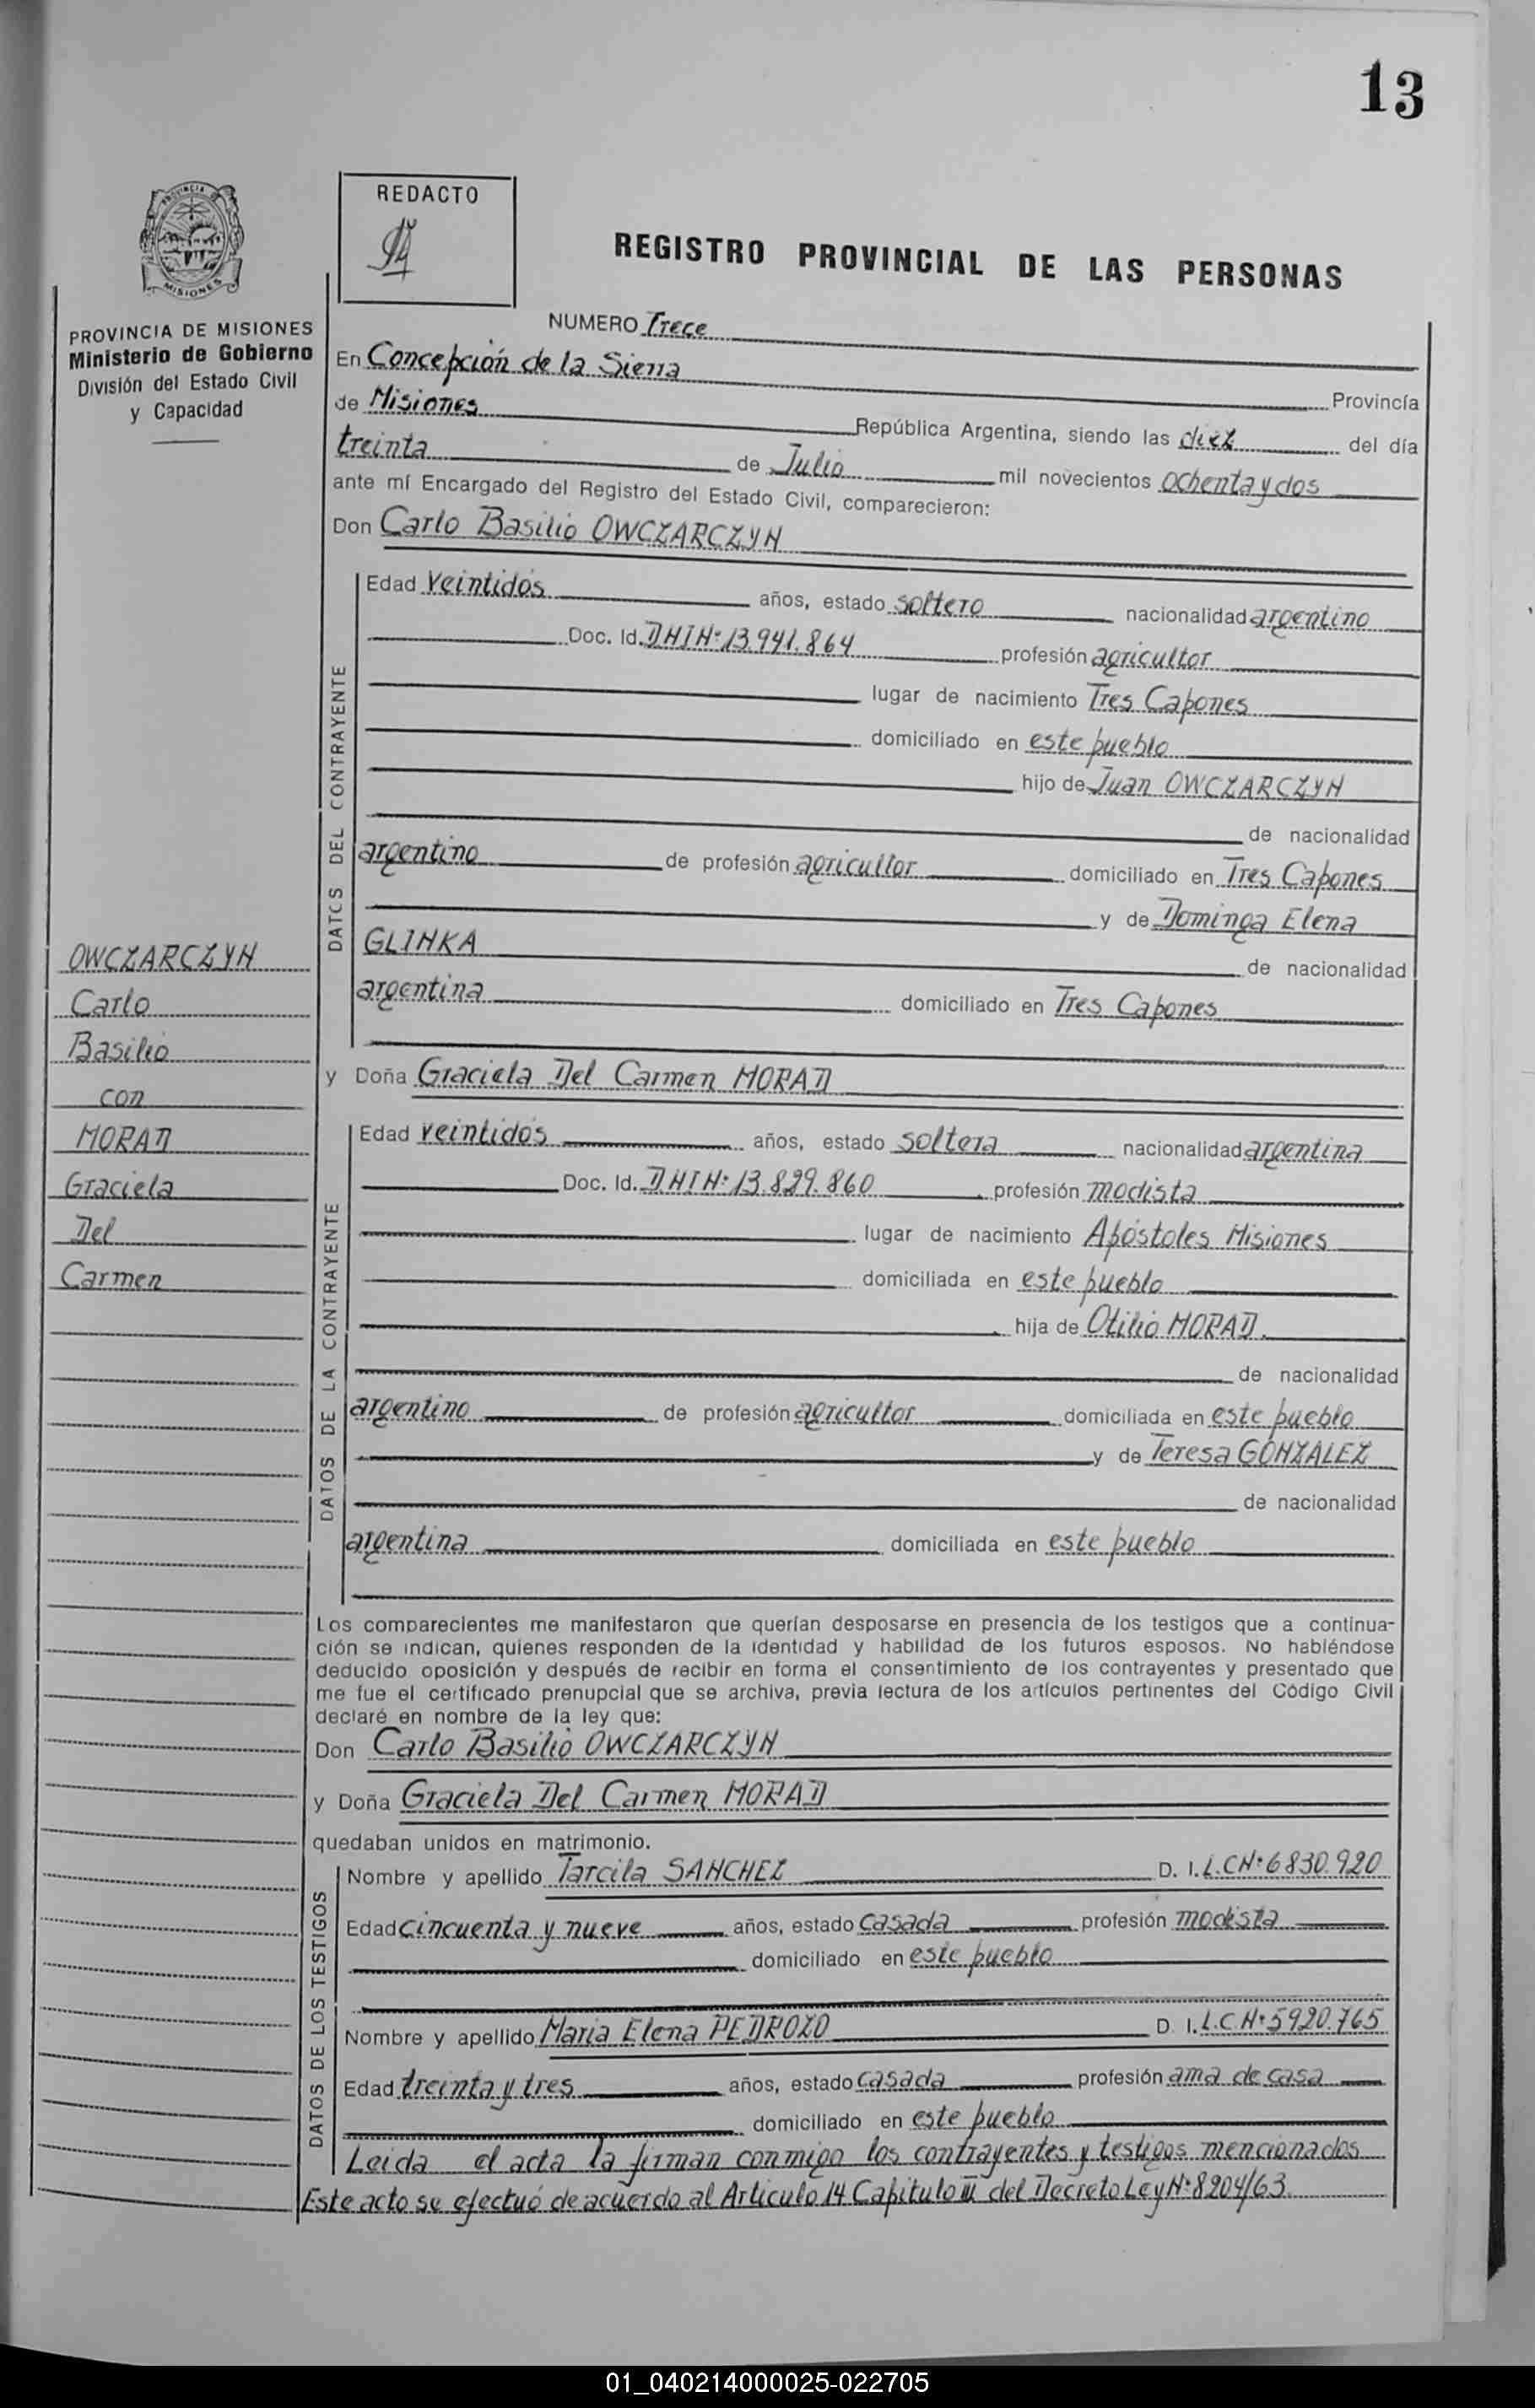 13
REDACTO
REGISTRO PROVINCIAL DE LAS PERSONAS
PROVINCIA DE MISIONES
Ministerio de Gobierno
División del Estado Civil
y Capacidad
NUMERO Trece
En Concepción de la Sierra
Provincia
de Misiones República Argentina, siendo las diez del día
treinta de Julio mil novecientos ochenta y dos
ante mí Encargado del Registro del Estado Civil, comparecieron:
Don Carlo Basilio OWCZARCZYN
DATOS DEL CONTRAYENTE
Edad veintidós años, estado soltero nacionalidad argentino
Doc. Id. DNIN: 13.941.864 profesión agricultor
lugar de nacimiento Tres Capones
domiciliado en este pueblo
hijo de Juan OWCZARCZYN
de nacionalidad
argentino de profesión agricultor domiciliado en Tres Capones
y de Dominga Elena
GLINKA de nacionalidad
argentina domiciliado en Tres Capones
OWCZARCZYN
Carlo
Basilio
con
MORAD
Graciela
Del
Carmen
y Doña Graciela Del Carmen MORAD
DATOS DE LA CONTRAYENTE
Edad veintidós años, estado soltera nacionalidad argentina
Doc. Id. DNIN: 13.829.860 profesión modista
lugar de nacimiento Apóstoles Misiones
domiciliada en este pueblo
hija de Otilio MORAD.
de nacionalidad
argentino de profesión agricultor domiciliada en este pueblo
y de Teresa GONZALEZ
de nacionalidad
argentina domiciliada en este pueblo
Los comparecientes me manifestaron que querían desposarse en presencia de los testigos que a continua-
ción se indican, quienes responden de la identidad y habilidad de los futuros esposos. No habiéndose
deducido oposición y después de recibir en forma el consentimiento de los contrayentes y presentado que
me fue el certificado prenupcial que se archiva, previa lectura de los artículos pertinentes del Código Civil
declaré en nombre de la ley que:
Don Carlo Basilio OWCZARCZYN
y Doña Graciela Del Carmen MORAD
quedaban unidos en matrimonio.
DATOS DE LOS TESTIGOS
Nombre y apellido Tarcila SANCHEZ D. I. L.CN: 6830.920
Edad cincuenta y nueve años, estado casada profesión modista
domiciliado en este pueblo
Nombre y apellido Maria Elena PEDROZO D. I. L.C.N: 5920.765
Edad treinta y tres años, estado casada profesión ama de casa
domiciliado en este pueblo
Leida el acta la firman conmigo los contrayentes y testigos mencionados
Este acto se efectuó de acuerdo al Artículo 14 Capitulo III del Decreto Ley N: 8204/63.
01_040214000025-022705